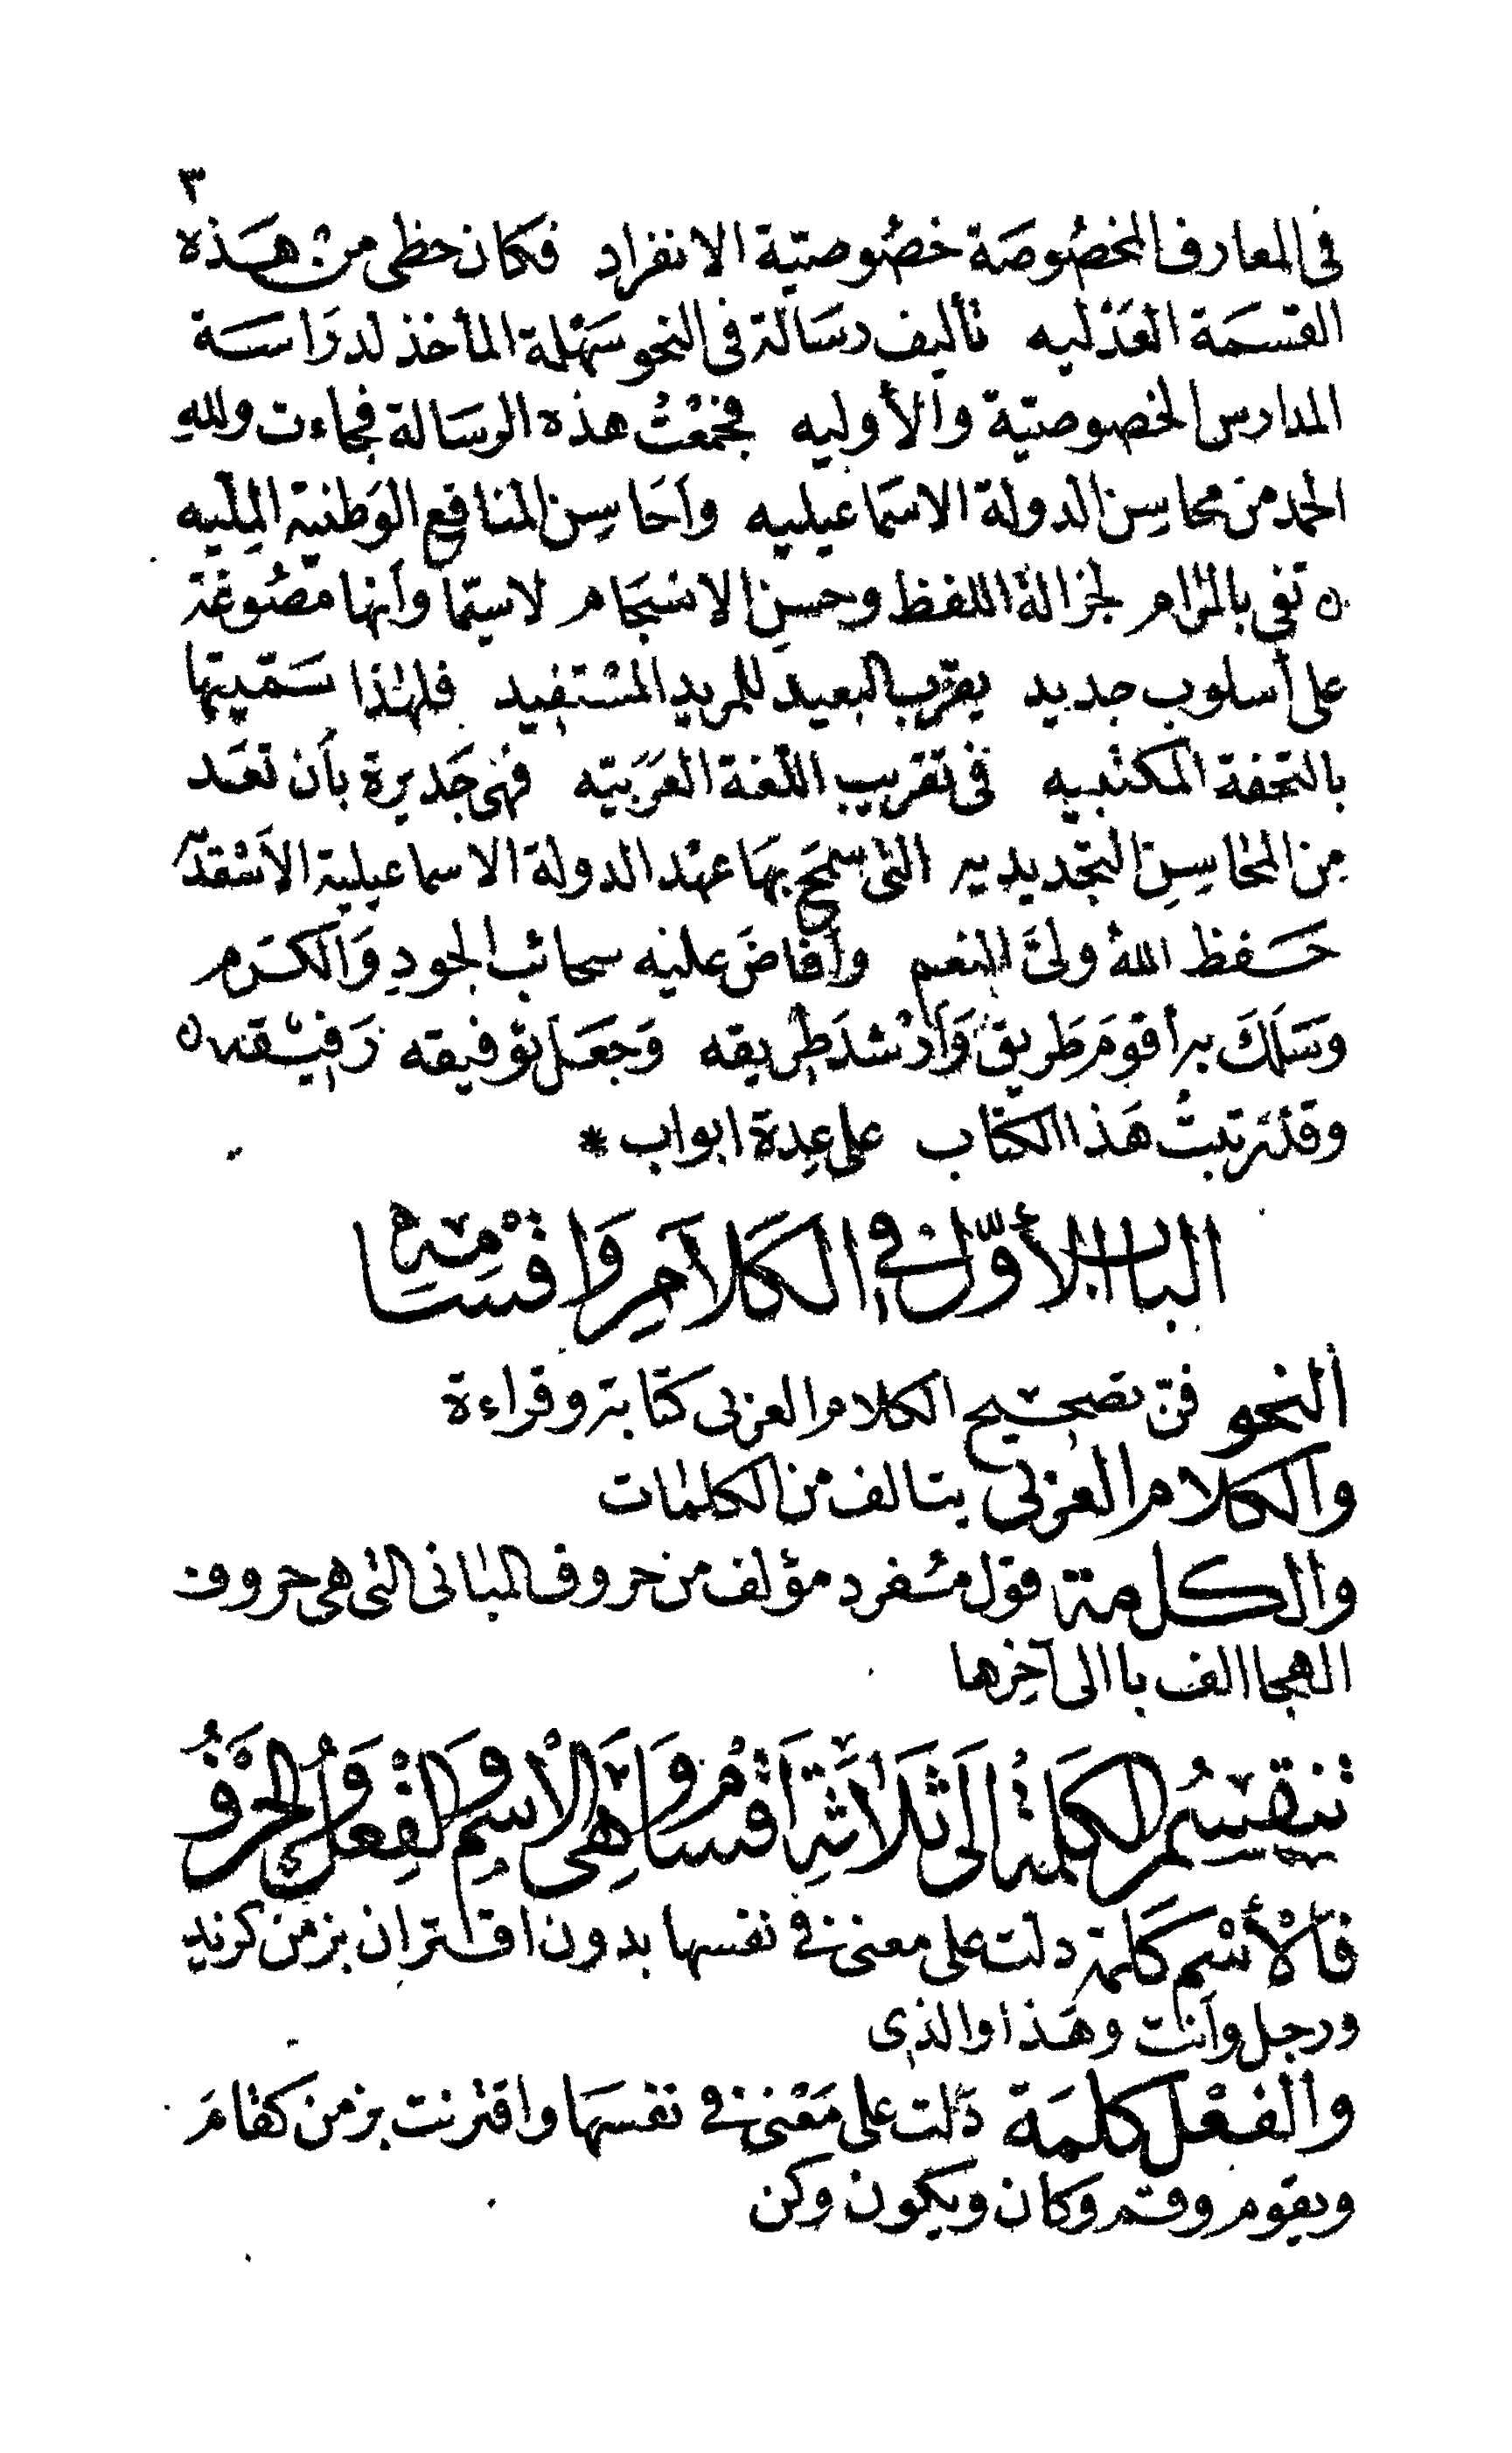 ٣
فى المعارف المخصُوصَة خصُوصيّة الانفراد فكان حظى من هَذه
القسمَة العَدْليه تأليف رسَالة فى النحو سَهْلة المأخذ لدرَاسَة
المدارس الخصوصيّة والأوليه فجمَعْتُ هذه الرسَالة فجاءت ولله
الحمد من محاسِن الدولة الاسمَاعيليه وأحَاسِن المنافع الوَطنية المِلّيه
ه تفى بالمرام لجزالة اللفظ وحسنِ الانسجام لاسيّما وأنها مصُوغة
على أسلوب جديد يقرّب البعيد للمريد المسْتفيد فلهذا سَمّيتها
بالتحفة المكتبيه فى تقريب اللّغة العَرَبيّه فهى جَديرة بأن تعَد
مِن المحاسِنِ التجديديه التى سمَح بهَا عهْد الدولة الاسماعيلية الأسْعَد
حَفظ اللهُ ولىَّ النعم وأفاضَ عليه سحائب الجودِ وَالكرَم
وَسَلَكَ به أقومَ طَريق وَأرْشدَ طريقه وَجَعَل توفيقه رَفيْقه ه
وقد رتبتُ هَذا الكتاب على عِدة ابواب *
الباب الأوّل فى الكَلاَمِ وَاقسَامِه
ألنحو فنّ تصحيح الكلام العربى كتابة وقراءة
والكلام العربى يتالف من الكلمات
والكلمة قول مُفرد مؤلف من حروف المبانى التى هى حروف
الهجا الف با الى آخرِها
تنقسِمُ الكَلمَةُ الَى ثَلَاثَةِ اَقسَامٍ وَهِىَ الاسْمِ وَالفِعْلُ وَالحَرْفُ
فَالأسْم كَلمة دلت على معنى فى نفسها بدون اقتران بزمن كزيد
ورجل وأنت وهَذا والذى
والفعْل كلمَة دَلت على مَعْنى فى نفسهَا واقترنت بزمن كقامَ
ويقوم وقم وكان ويكون وكن